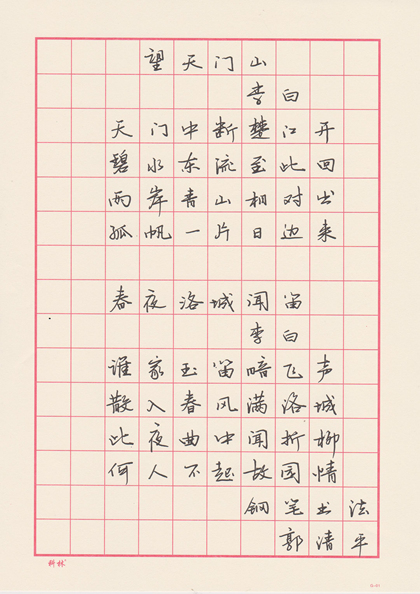 望天门山
李白
天门中断楚江开
碧水东流至此回
两岸青山相对出
孤帆一片日边来
春夜洛城闻笛
李白
谁家玉笛暗飞声
散入春风满洛城
此夜曲中闻折柳
何人不起故园情
钢笔书法
郭清平
科林